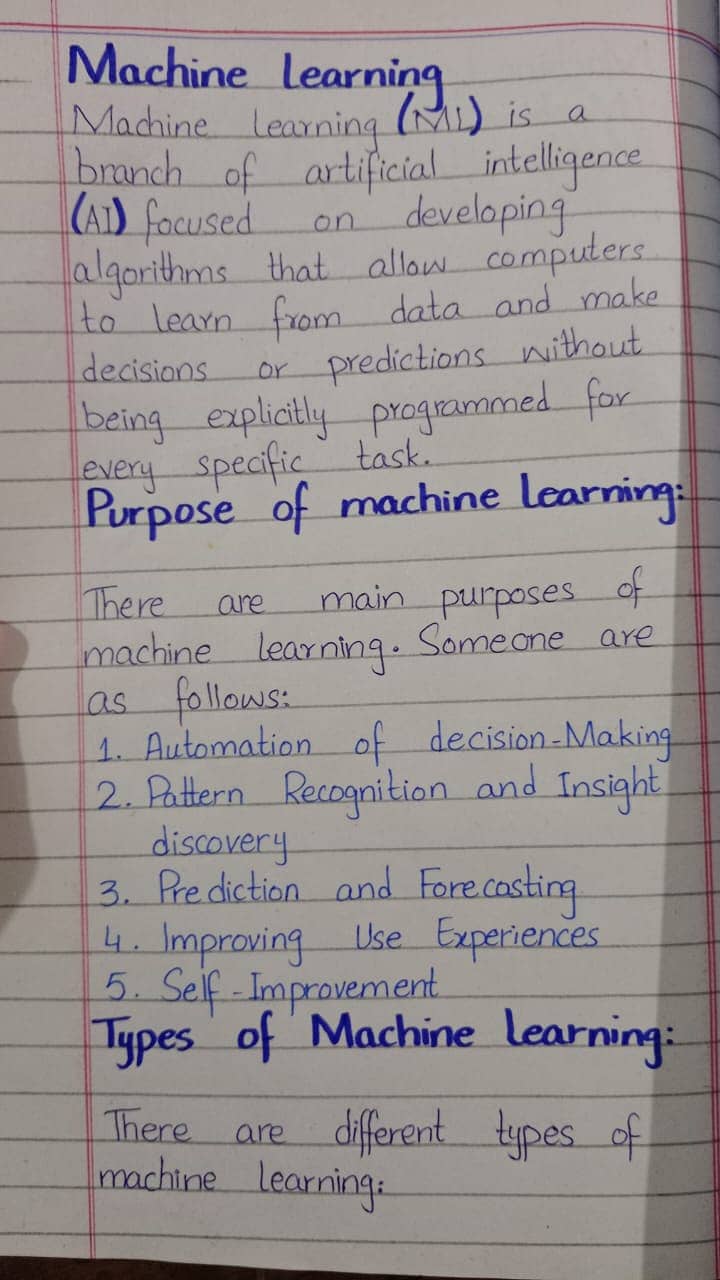 Machine Learning
Machine learning (ML) is a
branch of artificial intelligence
(AI) focused on developing
algorithms that allow computers
to learn from data and make
decisions or predictions without
being explicitly programmed for
every specific task.
Purpose of machine Learning:
There are main purposes of
machine learning. Someone are
as follows:
1. Automation of decision-Making
2. Pattern Recognition and Insight
discovery
3. Prediction and Forecasting
4. Improving Use Experiences
5. Self-Improvement
Types of Machine Learning:
There are different types of
machine learning: